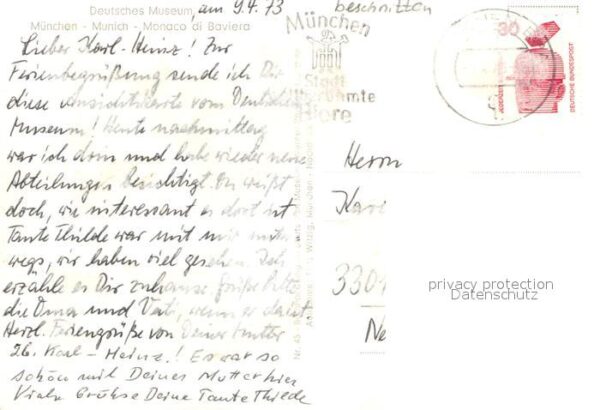 Deutsches Museum, am 9.4.73 beschnitten
München - Munich - Monaco di Baviera
München
Stadt
Biere
30
DEUTSCHE BUNDESPOST
Lieber Karl-Heinz! Zur
Ferienbegrüßung sende ich Dir
diese Ansichtskarte vom Deutschen
Museum! Heute nachmittag
war ich drin und habe wieder neue
Abteilungen besichtigt. Du weißt
doch, wie interessant es dort ist
Tante Thilde war mit mir unter
wegs, wir haben viel gesehen. Ich
erzähle es Dir zuhause. Grüße bitte
die Oma und Vati, wenn er da ist
Herzl. Feriengrüße von Deiner Mutter
Lb. Karl-Heinz! Es war so
schön mit Deiner Mutter hier
Viele Grüße Deine Tante Thilde
Herrn
Karl
330
Ne
privacy protection
Datenschutz